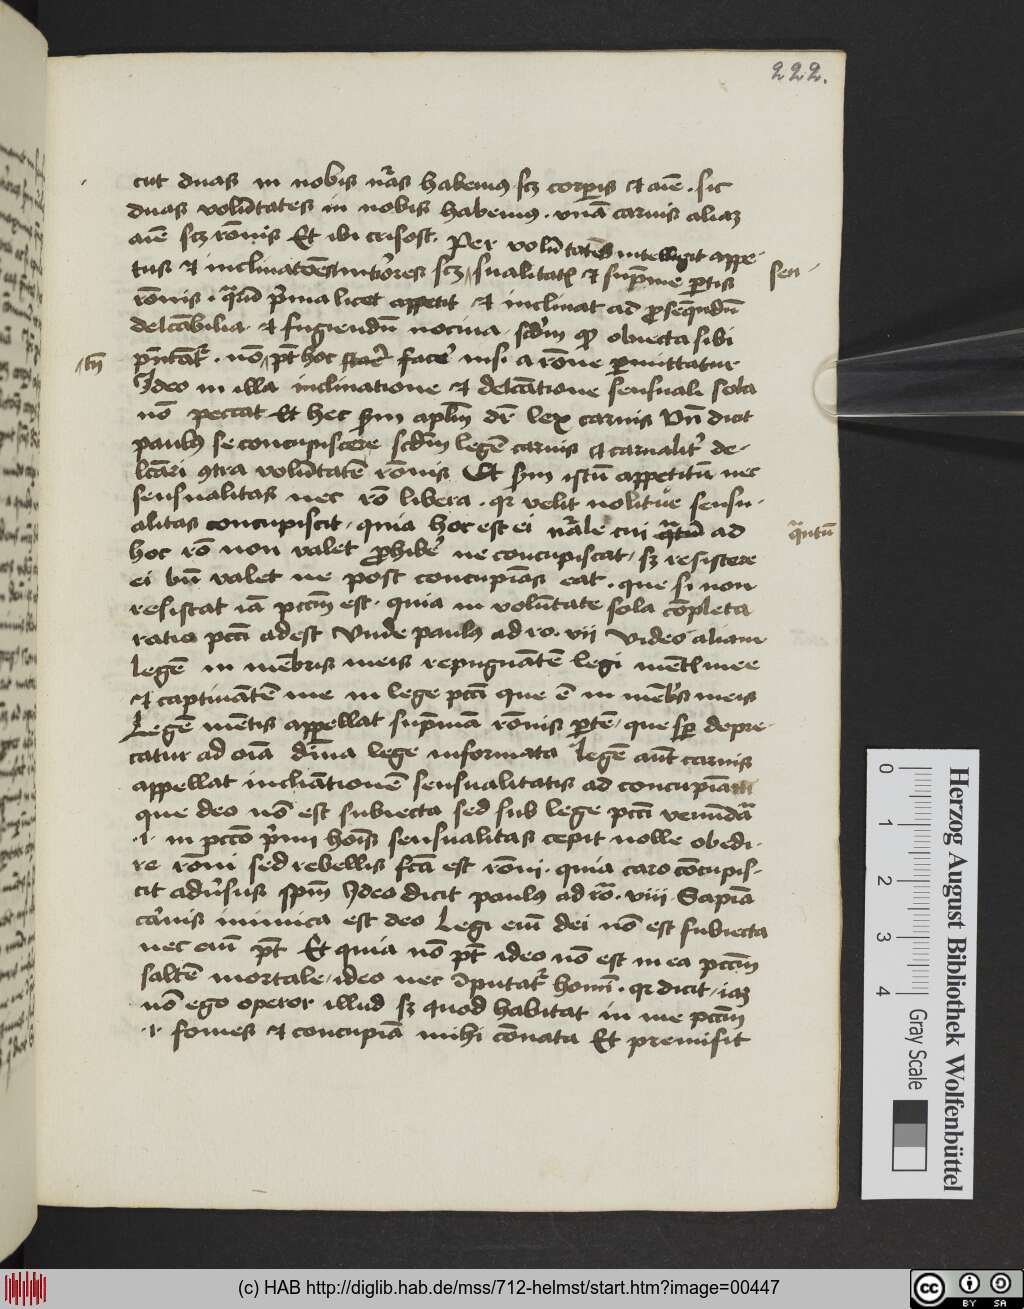 222.
cut duas in nobis nr̄as habemus scz corpis et aīe . sic
duas volūtates in nobis habemus . vnā carnis aliaz
aīe scz rōnis Et ibi crisost. Per volūtates intelligit appe
tus et inclinatōes scz sualitatꝭ et supme ꝑtis
sen
rōnis . qͣuis pͥma licet appetit et inclinat ad ꝓseq̄ndū
delcābilia et fugiendū nociua . obiecta sibi
pn̄tātᷣ . nō pt̄ hoc facē nisi a rōne ꝑmittatur
tn̄
Ideo in illa inclinatione et delcātione sensuali sola
nō peccat Et hec sm̄ aplm̄ dr̄ lex carnis Vn̄ dicit
paulus se concupiscere scdm̄ legē carnis et carnalitᷣ de-
lcāri ꝯtra volūtatē rōnis Et sm̄ istū appetitū nec
sensualitas nec rō libera . qr velit nolit sensu-
alitas concupiscit . quia hoc est ei nr̄ale cui ad
qͣntū
hoc rō non valet ꝓhibē ne concupiscat . sz resistere
ei bn̄ valet ne post concupīas eat . que si non
resistat iā pcc̄m est . quia in volūtate sola cōpleta
ratio pcc̄i adest Vnde paulus ad ro. vii Video aliam
legē in mēbris meis repugnātē legi mētꝭ mee
et captiuātē me in lege pcc̄i que ē in mēbͥs meis
Legē mētis appellat supmā rōnis ꝑtē . que sꝑ depre-
catur ad oīa diuīa lege informata legē aūt carnis
appellat incliātionē sensualitatis ad concupīa
que deo nō est subiecta sed sub lege pcc̄i
.i. in pcc̄o pͥmi hoīs sensualitas cepit nolle obedi-
re rōni sed rebellis fc̄a est rōni . quia caro cōcupis-
cit aduͥsus spm̄ Ideo dicit paulus ad rō . viii Sapīa
carnis inimica est deo Legi eiū dei nō est subiecta
nec eiū pt̄ Et quia nō pt̄ ideo nō est in ea pcc̄m
saltē mortale . ideo nec īputatᷣ homī . qr dicit . iaz
nō ego operor illud sz quod habitat in me pcc̄m
.i. fomes et concupīa mihi cōnata Et premisit
Herzog August Bibliothek Wolfenbüttel
0 1 2 3 4
Gray Scale
(c) HAB http://diglib.hab.de/mss/712-helmst/start.htm?image=00447
cc BY SA